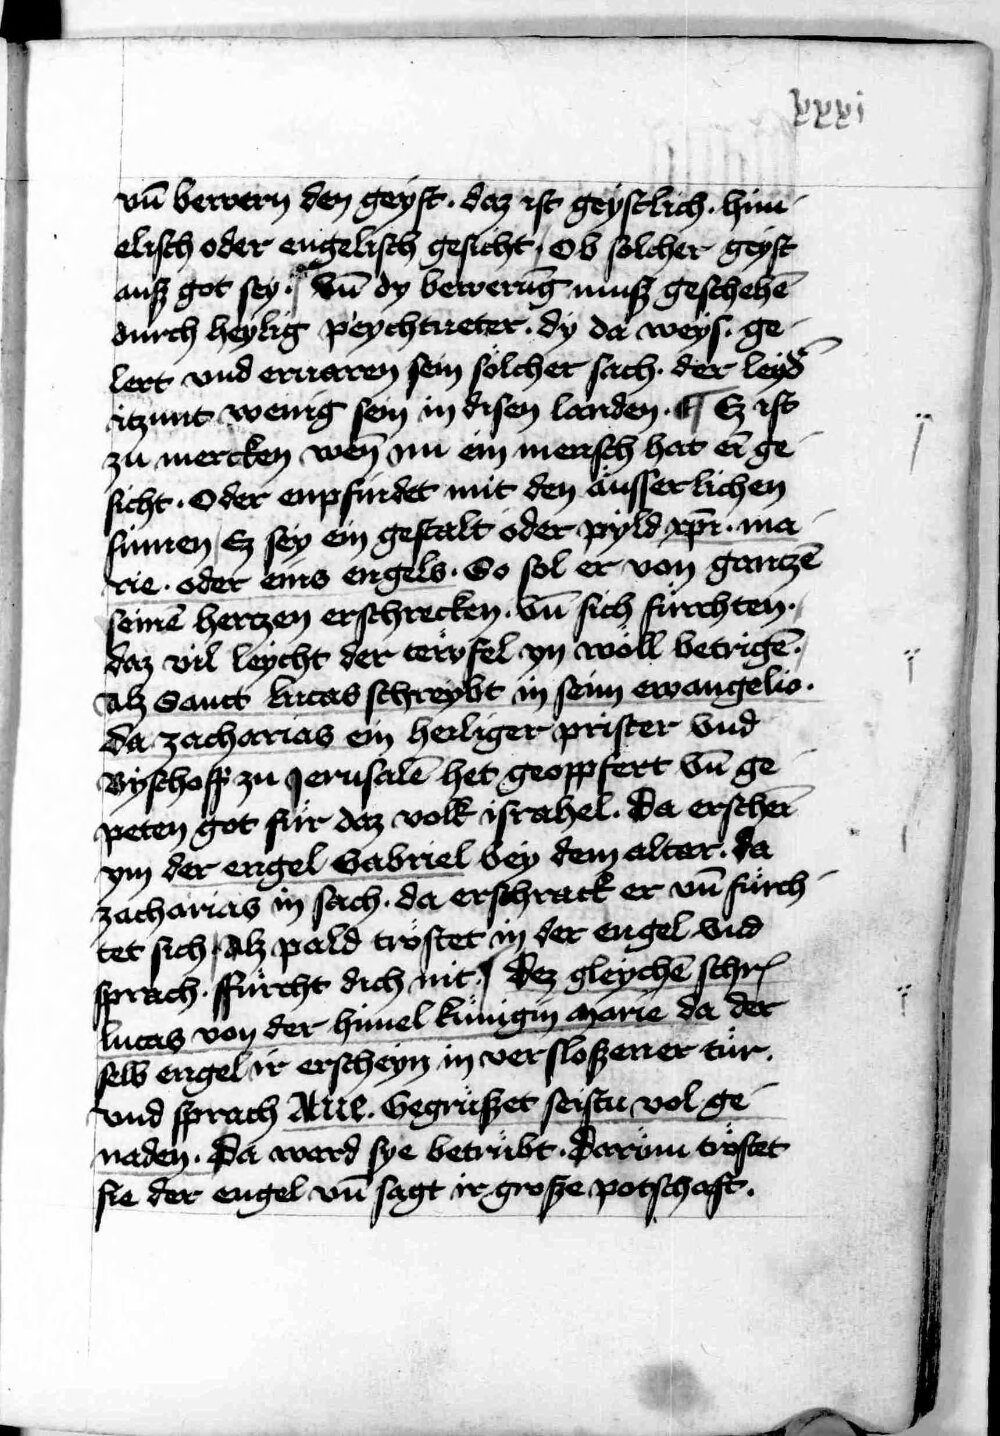 lxxxi
vn̄ bervern den geyst · daz ist geystlich · him
elisch oder engelisch gesicht / Ob solcher geyst
auß got sey · Vn̄ dy berverūg muß geschehē
durch heylig peychtueter · dy da weys · ge
lert vnd eruaren sein sölcher sach · der leyd̄
itzunt wenig sein in disen landen · ¶ Ez ist
zu mercken wen̄ nu ein mensch hat ei̅ ge
sicht · Oder enpfindet mit den äusserlichen
sinnen / Ez sey ein gestalt oder pyld xp̄i · ma
rie · oder eins engels · So sol er von gantzē
seinē hertzen erschrecken · Vn̄ sich fürchten ·
daz vil leycht der tewfel yn wöll betrigē ·
Alz Sanct Lucas schreybt in seim ewangelio ·
Da zacharias ein heiliger prister Vnd
Byschoff zu Jerusalē het geoppfert Vn̄ ge
peten got für daz volk israhel · Da erschei̅
ym der engel Gabriel bey dem altar · Da
zacharias in sach · da erschrack er vn̄ fürch
tet sich / Alz pald tröstet in der engel Vnd
sprach · ffürcht dich nit · Dez gleychē schrꝭ
lucas von der himel künigin marie da der
selb engel ir erscheyn in versloßener tür ·
Vnd sprach Aue · Gegrüßet seistu vol ge
naden · Da ward sye betrübt · Darüm tröstet
sie der engel vn̄ sagt ir große potschaft ·